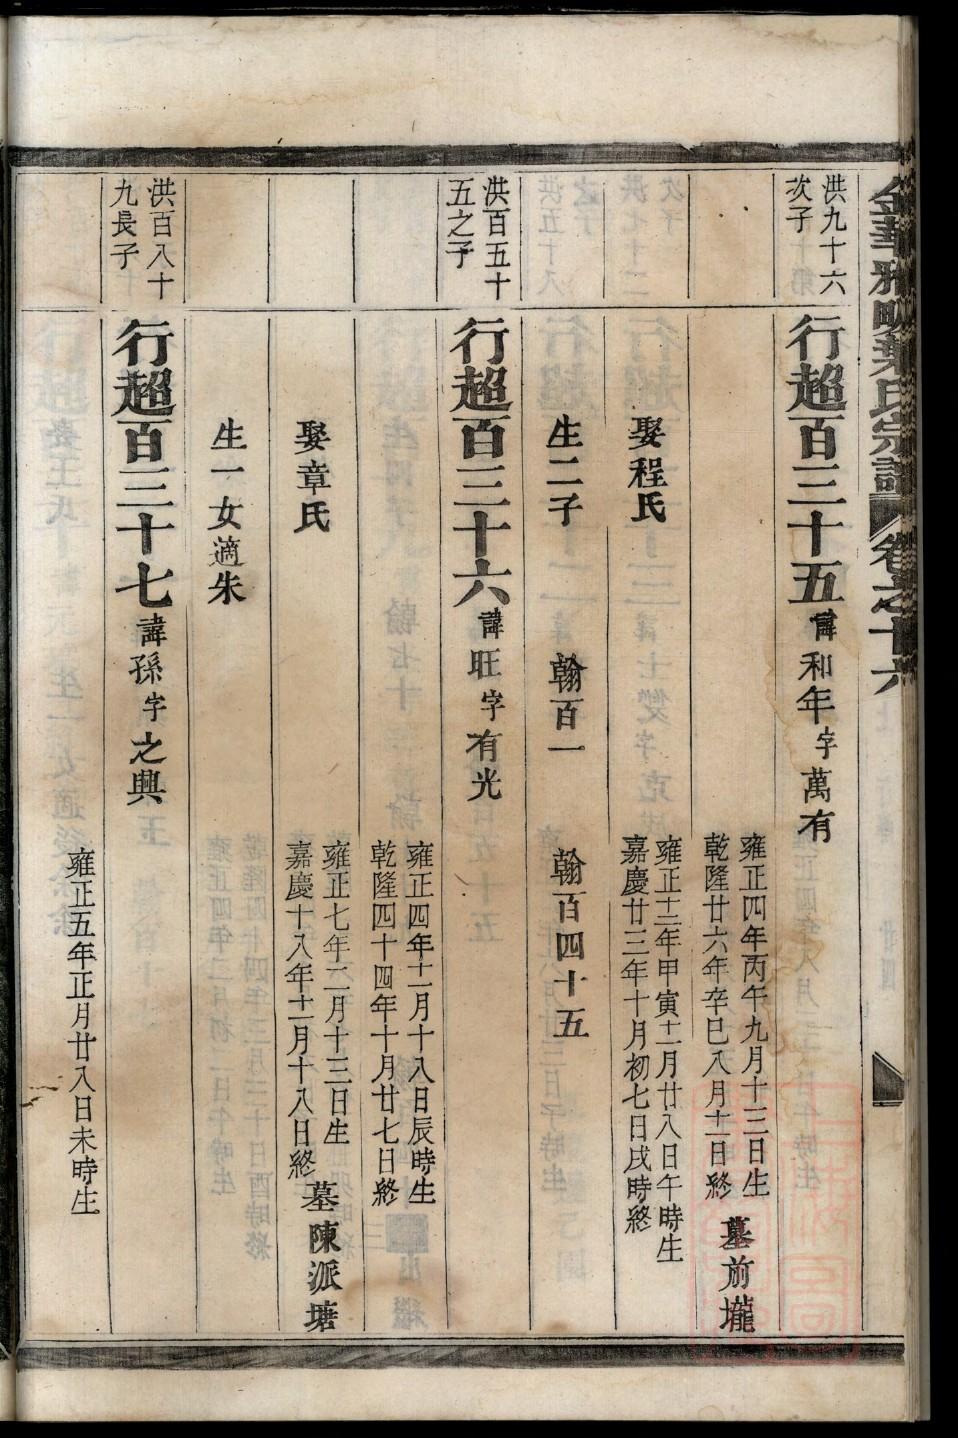 金華雅畈葉氏宗譜 卷之十六
洪九十六
次子
行超百三十五 諱和年字萬有
雍正四年丙午九月十三日生
乾隆廿六年辛巳八月十二日終 墓前壠
娶程氏
雍正十二年甲寅十二月廿八日午時生
嘉慶廿三年十月初七日戌時終
生二子 翰百一 翰百四十五
洪百五十
五之子
行超百三十六 諱旺字有光
雍正四年十一月十八日辰時生
乾隆四十四年十月廿七日終
娶章氏
雍正七年二月十三日生
嘉慶十八年十一月十八日終 墓陳派塘
生一女適朱
洪百八十
九長子
行超百三十七 諱孫字之興
雍正五年正月廿八日未時生